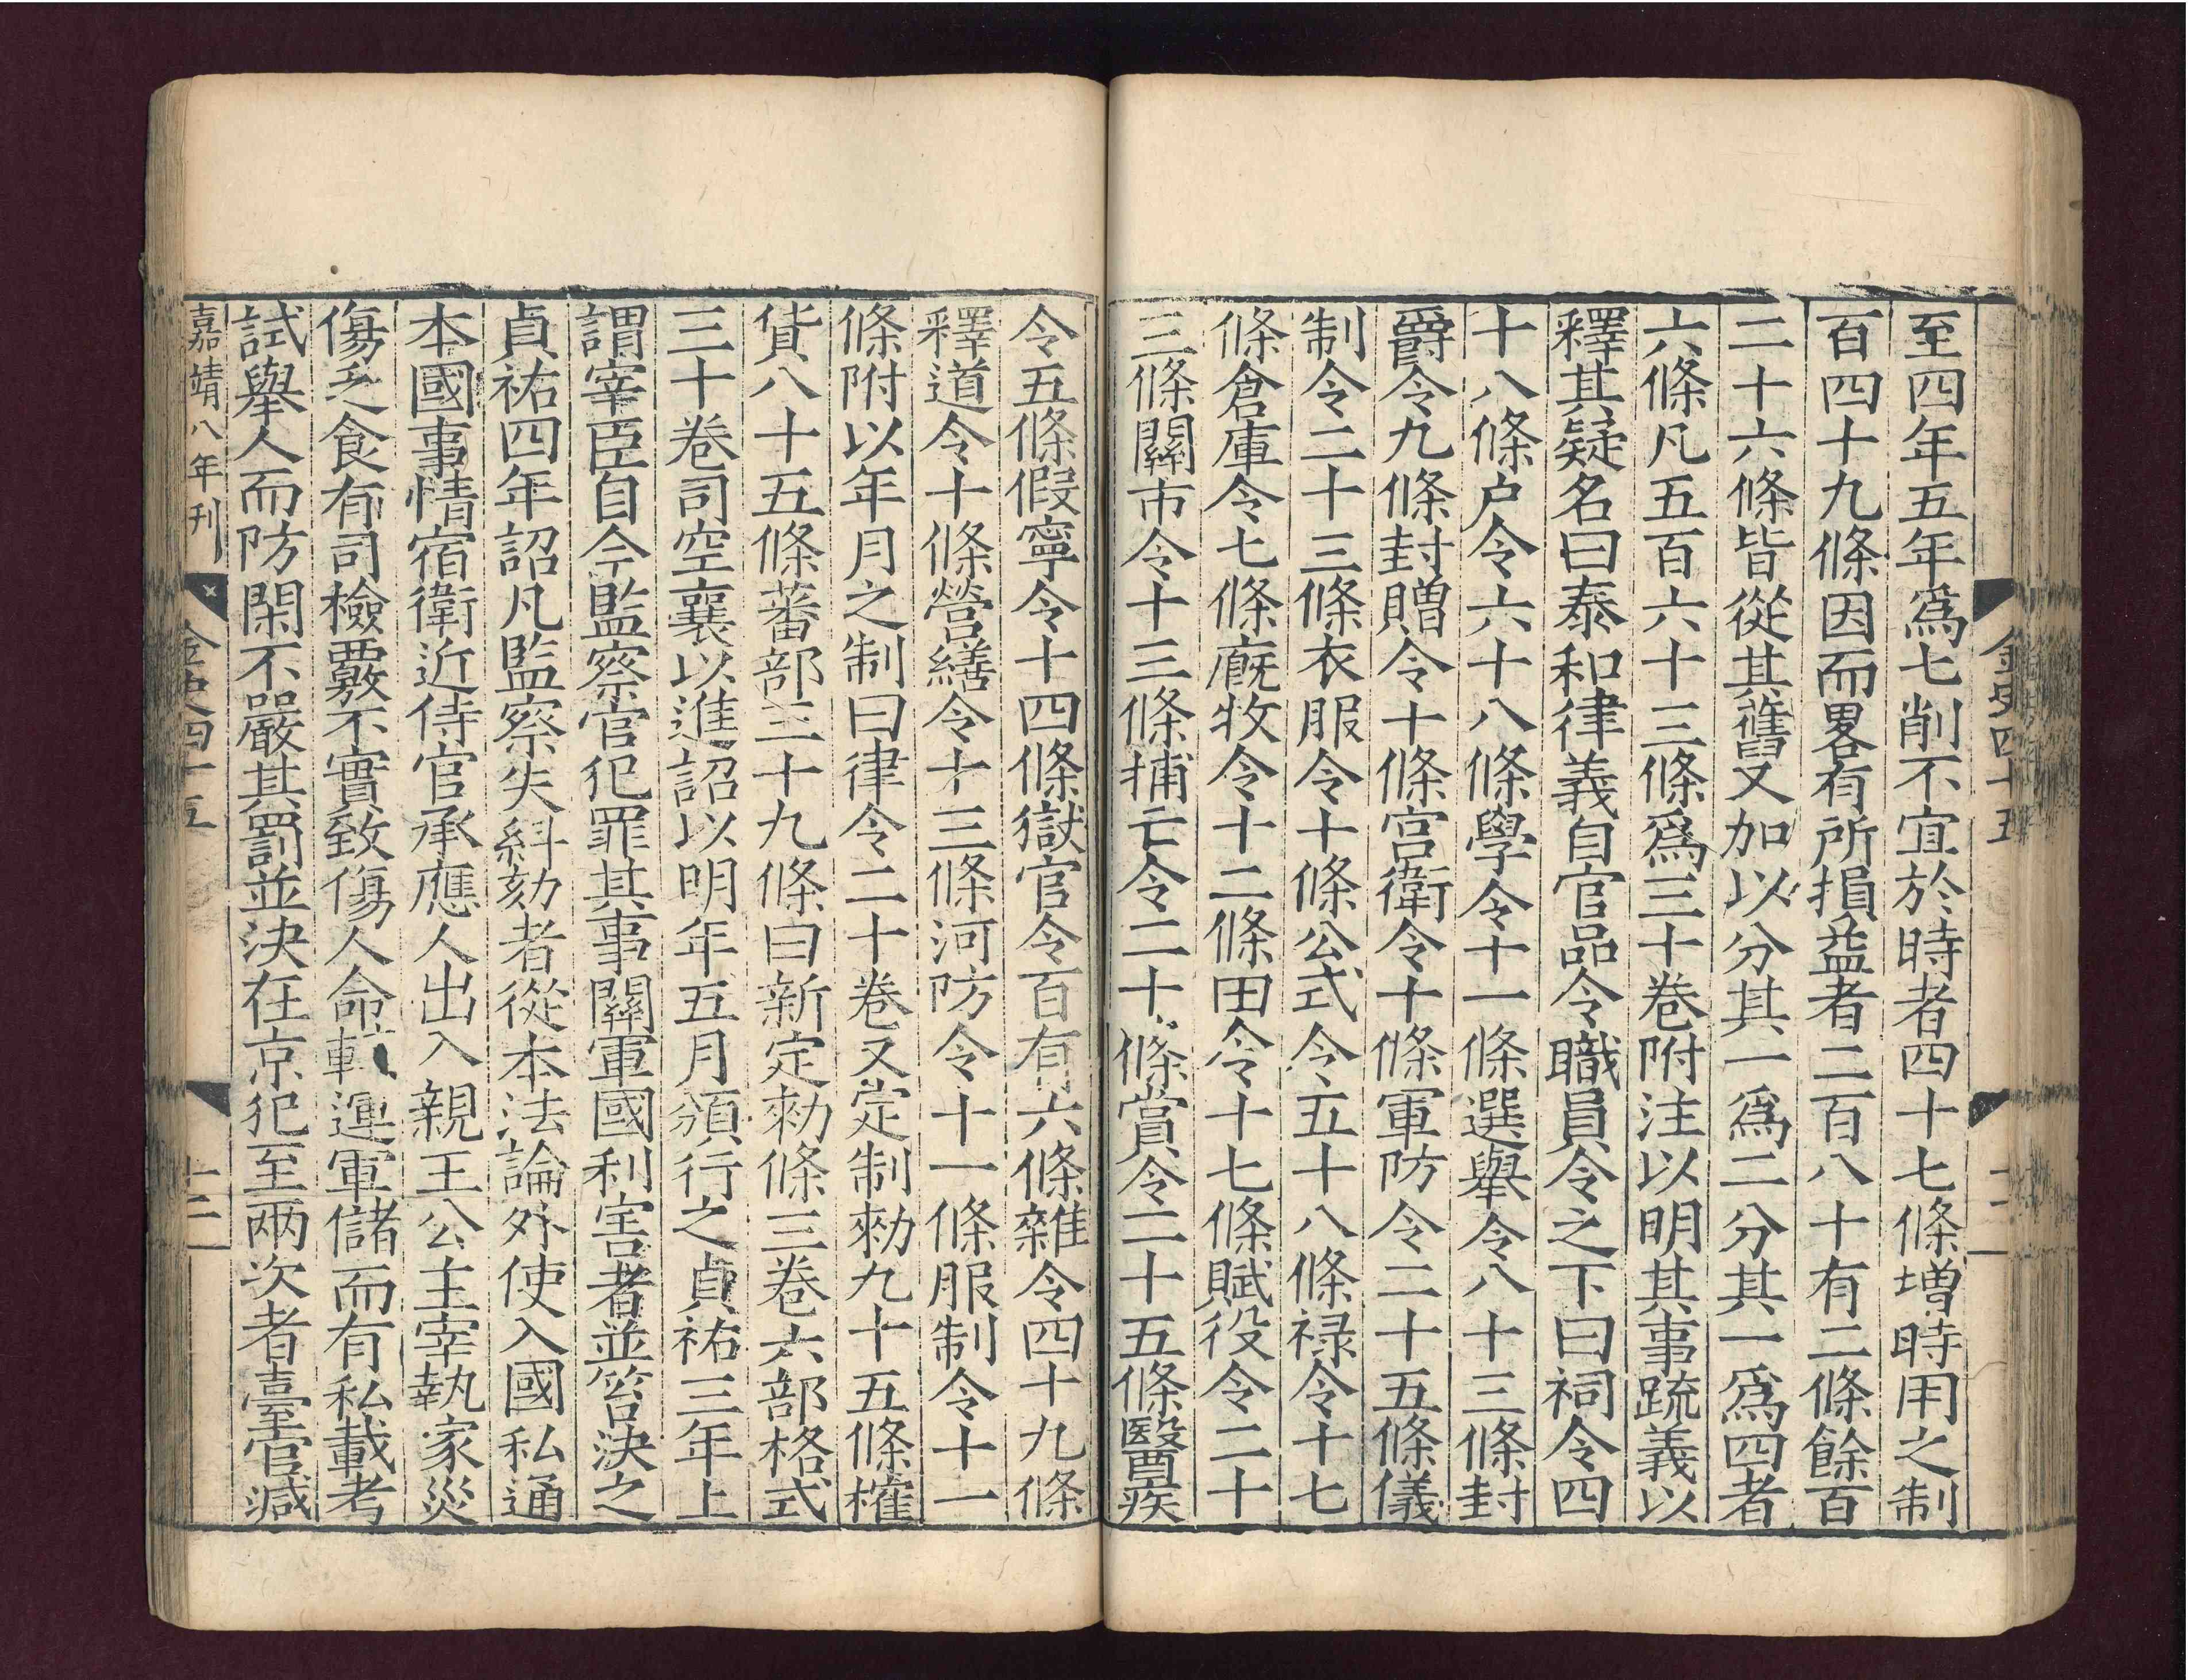 金史四十五
十一
至四年五年爲七削不宜於時者四十七條增時用之制
百四十九條因而畧有所損益者二百八十有二條餘百
二十六條皆從其舊又加以分其一爲二分其一爲四者
六條凡五百六十三條爲三十卷附注以明其事疏義以
釋其疑名曰泰和律義自官品令職員令之下曰祠令四
十八條户令六十八條學令十一條選舉令八十三條封
爵令九條封贈令十條宫衛令十條軍防令二十五條儀
制令二十三條衣服令十條公式令五十八條禄令十七
條倉庫令七條廐牧令十二條田令十七條賦役令二十
三條關市令十三條捕亡令二十條賞令二十五條醫疾
令五條假寧令十四條獄官令百有六條雜令四十九條
釋道令十條營繕令十三條河防令十一條服制令十一
條附以年月之制曰律令二十卷又定制勑九十五條榷
貨八十五條蕃部三十九條曰新定勑條三卷六部格式
三十卷司空襄以進詔以明年五月頒行之貞祐三年上
謂宰臣自今監察官犯罪其事關軍國利害者並笞決之
貞祐四年詔凡監察失糾劾者從本法論外使入國私通
本國事情宿衛近侍官承應人出入親王公主宰執家災
傷乏食有司檢覈不實致傷人命轉運軍儲而有私載考
試舉人而防閑不嚴其罰並決在京犯至兩次者臺官減
嘉靖八年刊
金史四十五